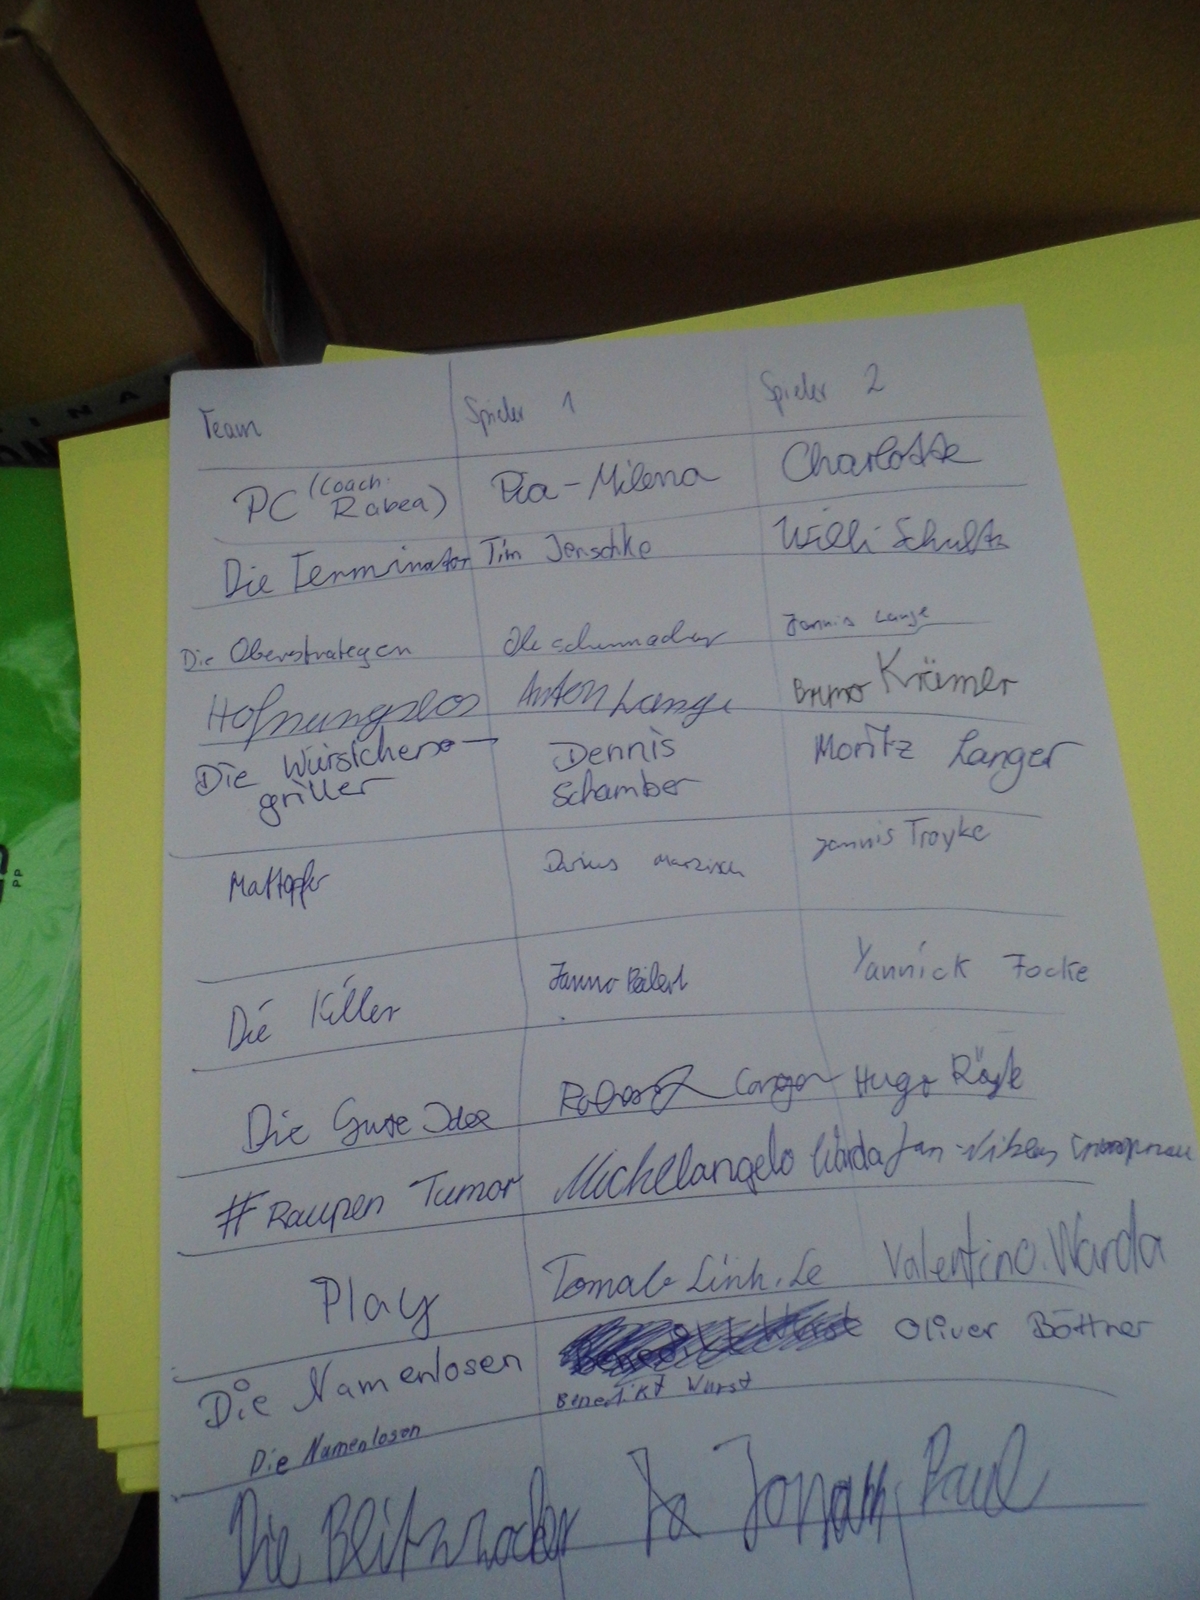 Team Spieler 1 Spieler 2
PC (Coach: Rabea) Pia-Milena Charlotte
Die Terminator Tim Jenschke Willi Schultz
Die Oberstrategen Ole schumacher Jannis Lange
Hofnungslos Anton Lange Bruno Krämer
Die Würstchen- Dennis Moritz Langer
griller Schamber
Mattopfer Darius Jannis Troyke
Die Killer Yannick Focke
Die Gute Idee Hugo
#Raupen Tumor Michelangelo Warda Jan-Niklas
Play Linh.Le Valentino.Warda
Die Namenlosen Oliver Böttner
Benedikt Wurst
Die Namenlosen
Die Jonah Paul